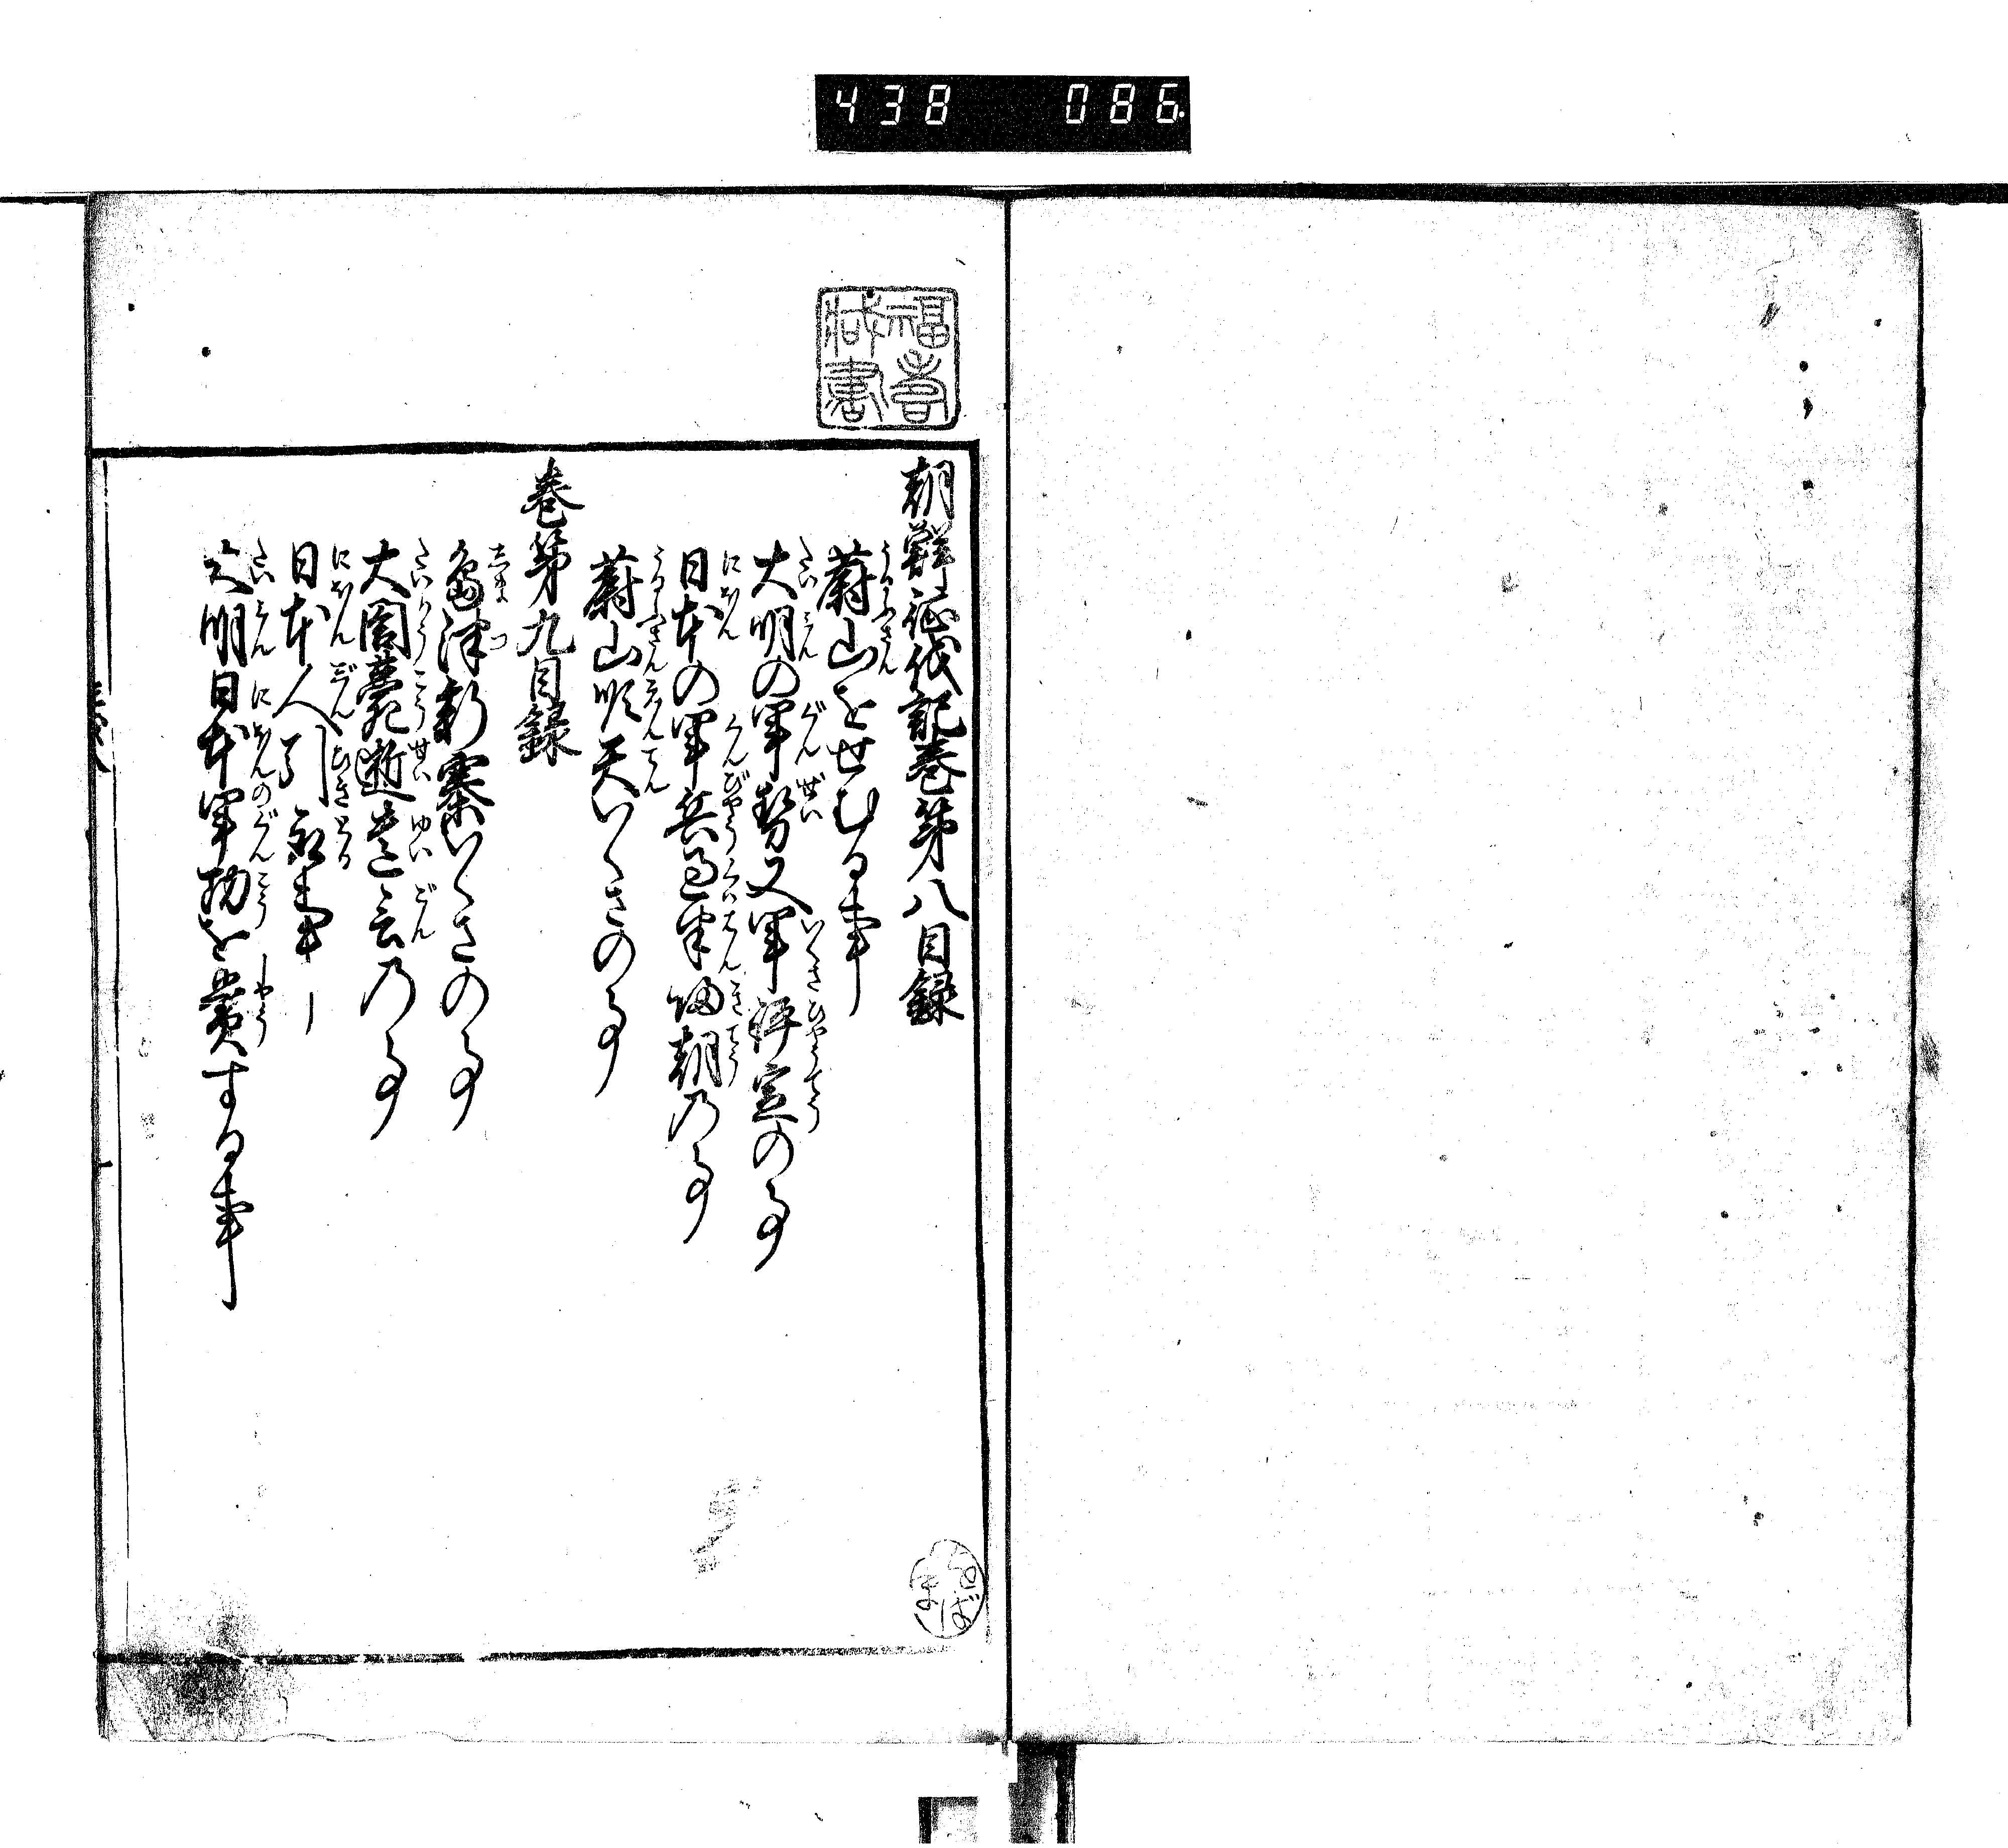 438 086
福壽
蔵書
朝鮮征伐記巻第八目録
蔚山をせむる事
大明の軍勢又軍評定の事
日本の軍兵過半帰朝乃事
蔚山順天いくさの事
巻第九目録
島津新寨いくさの事
大閤薨逝遺言乃事
日本人引取事
大明日本軍功を賞する事